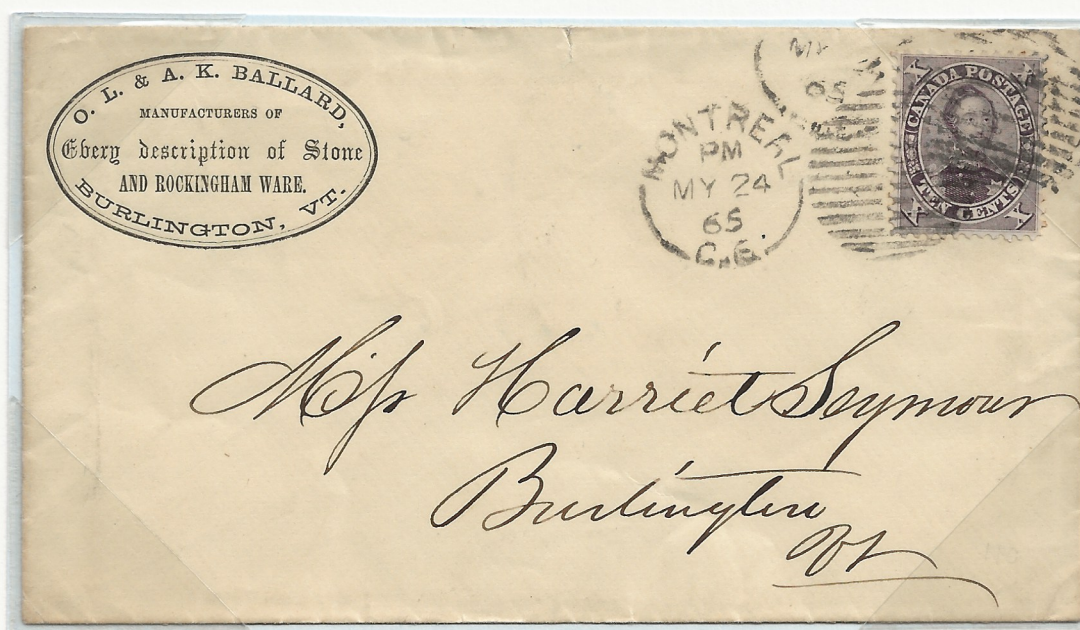 O. L. & A. K. BALLARD,
MANUFACTURERS OF
Every description of Stone
AND ROCKINGHAM WARE.
BURLINGTON, VT.
MONTREAL
PM
MY 24
65
C.E.
MY
65
CANADA POSTAGE
TEN CENTS
X
X
X
X
Miss Harriet Seymour
Burlington
Vt